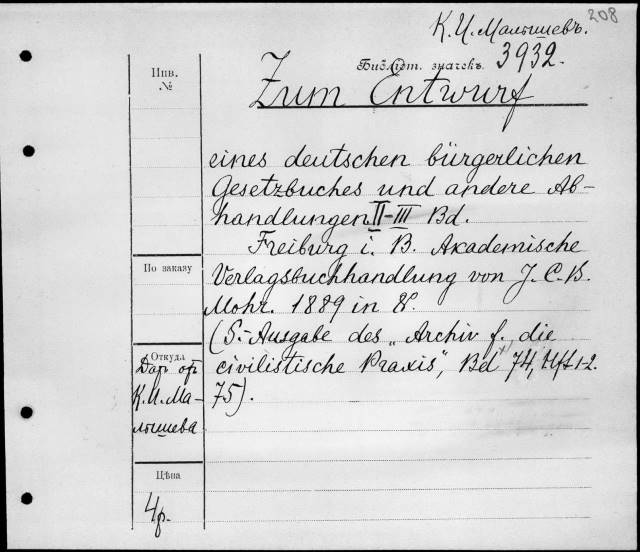 208
К. И. Малышевъ.
Инв.
№
Библіот. значекъ. 3932.
Zum Entwurf
eines deutschen bürgerlichen
Gesetzbuches und andere Ab-
handlungen II-III Bd.
Freiburg i. B. Akademische
По заказу
Verlagsbuchhandlung von J. C. B.
Mohr. 1889 in 8º.
(S.-Ausgabe des „Archiv f. die
Откуда
civilistische Praxis", Bd 74, Hft 1-2.
75).
Даръ отъ
К. И. Ма-
лышева
Цѣна
4р.